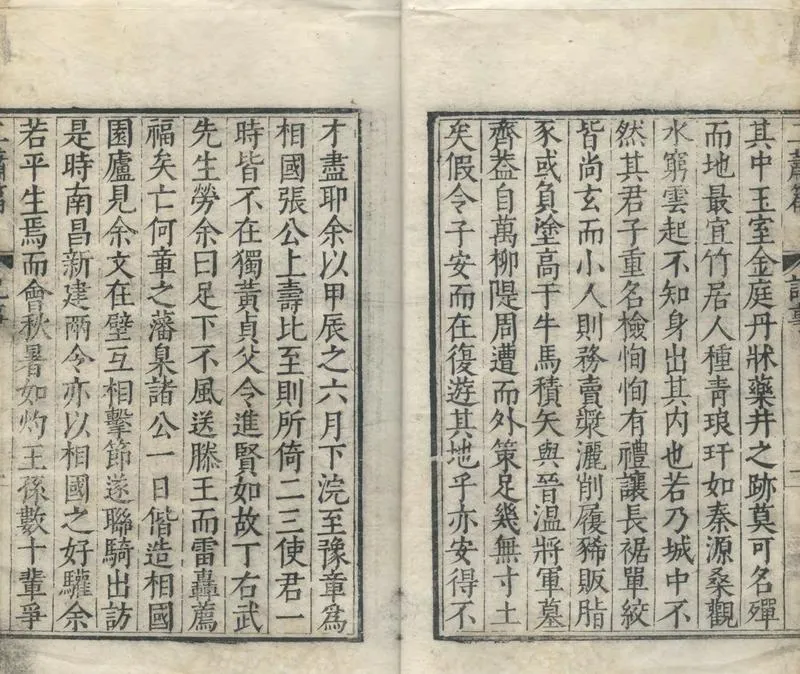 其中玉室金庭丹牀藥井之跡莫可名殫
而地最宜竹居人種青琅玕如秦源桑觀
水窮雲起不知身出其內也若乃城中不
然其君子重名檢恂恂有禮讓長裾單絞
皆尚玄而小人則務賣漿灑削履豨販脂
豕或負塗高于牛馬積矢與晉溫將軍墓
齊葢自萬柳隄周遭而外策足幾無寸土
矣假令子安而在復遊其地乎亦安得不
才盡耶余以甲辰之六月下浣至豫章為
相國張公上壽比至則所倚二三使君一
時皆不在獨黃貞父令進賢如故丁右武
先生勞余曰足下不風送滕王而雷轟薦
福矣亡何章之藩臬諸公一日偕造相國
園廬見余文在壁互相擊節遂聯騎出訪
是時南昌新建兩令亦以相國之好驩余
若平生焉而會秋暑如灼王孫數十輩爭